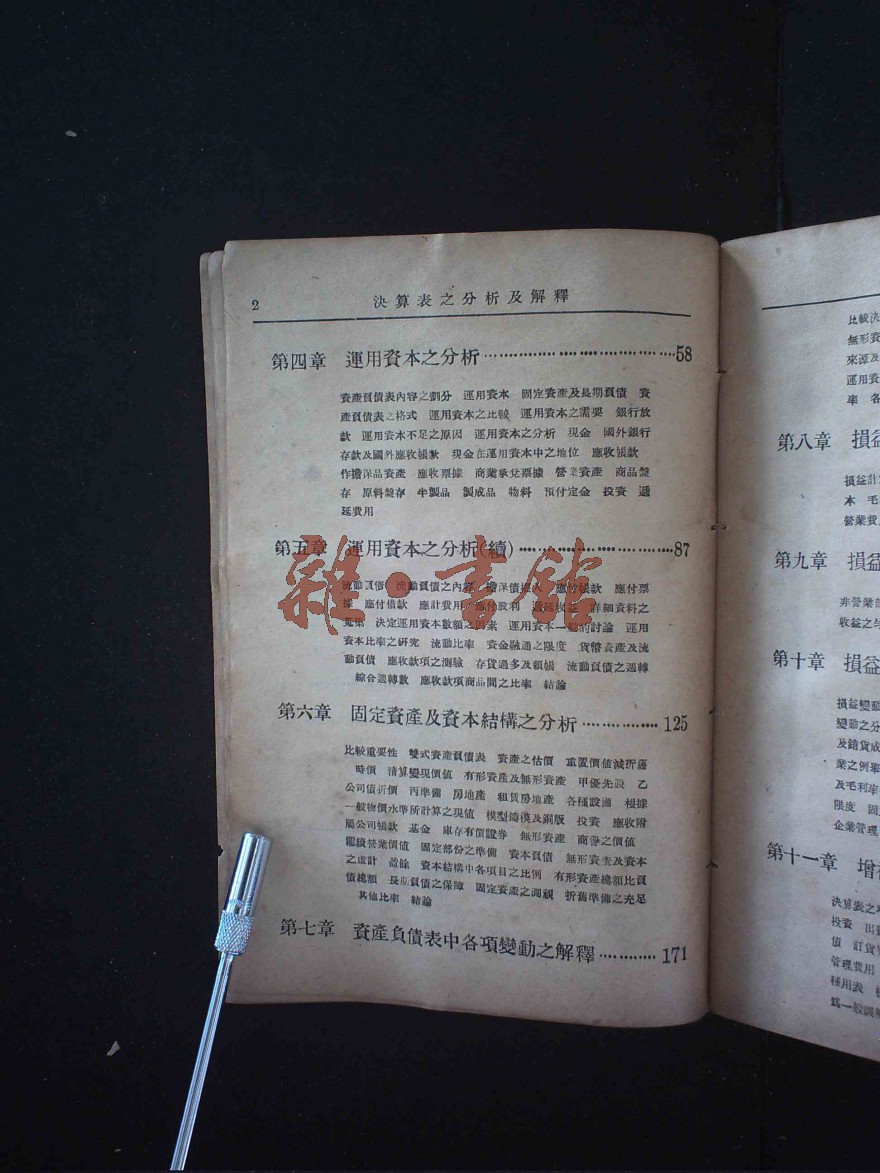 2 決算表之分析及解釋
第四章 運用資本之分析 58
資產負債表內容之劃分 運用資本 固定資產及長期負債 資
產負債表之格式 運用資本之比較 運用資本之需要 銀行放
款 運用資本不足之原因 運用資本之分析 現金 國外銀行
存款及國外應收帳款 現金在運用資本中之地位 應收帳款
作擔保品資產 應收票據 商業承兌票據 營業資產 商品盤
存 原料盤存 半製品 製成品 物料 預付定金 投資 遞
延費用
第五章 運用資本之分析(續) 87
流動負債 流動負債之內容 擔保債 應付帳款 應付票
應付借款 應計費用 應付股利 遞延收益 詳細資料之
決定運用資本數額之因素 運用資本一般的討論 運用
資本比率之研究 流動比率 資金融通之限度 貨幣資產及流
動負債 應收款項之測驗 存貨過多及賴帳 流動負債之週轉
綜合週轉數 應收款項商品間之比率 結論
第六章 固定資產及資本結構之分析 125
比較重要性 雙式資產負債表 資產之估價 重置價值減折舊
時價 清算變現價值 有形資產及無形資產 甲優先股 乙
公司債折價 丙準備 房地產 租賃房地產 各種設備 根據
一般物價水準所計算之現值 模型鑄模及銅版 投資 應收附
屬公司帳款 基金 庫存有價證券 無形資產 商譽之價值
繼續營業價值 固定部份之準備 資本負債 無形資產及資本
之虛計 盈餘 資本結構中各項目之比例 有形資產總額比負
債總額 長期負債之保障 固定資產之 折舊準備之充足
其他比率 結論
第七章 資產負債表中各項變動之解釋 171
比較決
無形資
來源及
運用資
率 各
第八章 損益
損益計
本 毛
營業費
第九章 損益
非營業
收益之
第十章 損益
損益變動
變動之分
及銷貨成
業之例
及毛利率
限度 固
企業管理
第十一章 增
決算表之
投資 出
債 訂貨
管理費用
種用表
爲一般
雜·書館